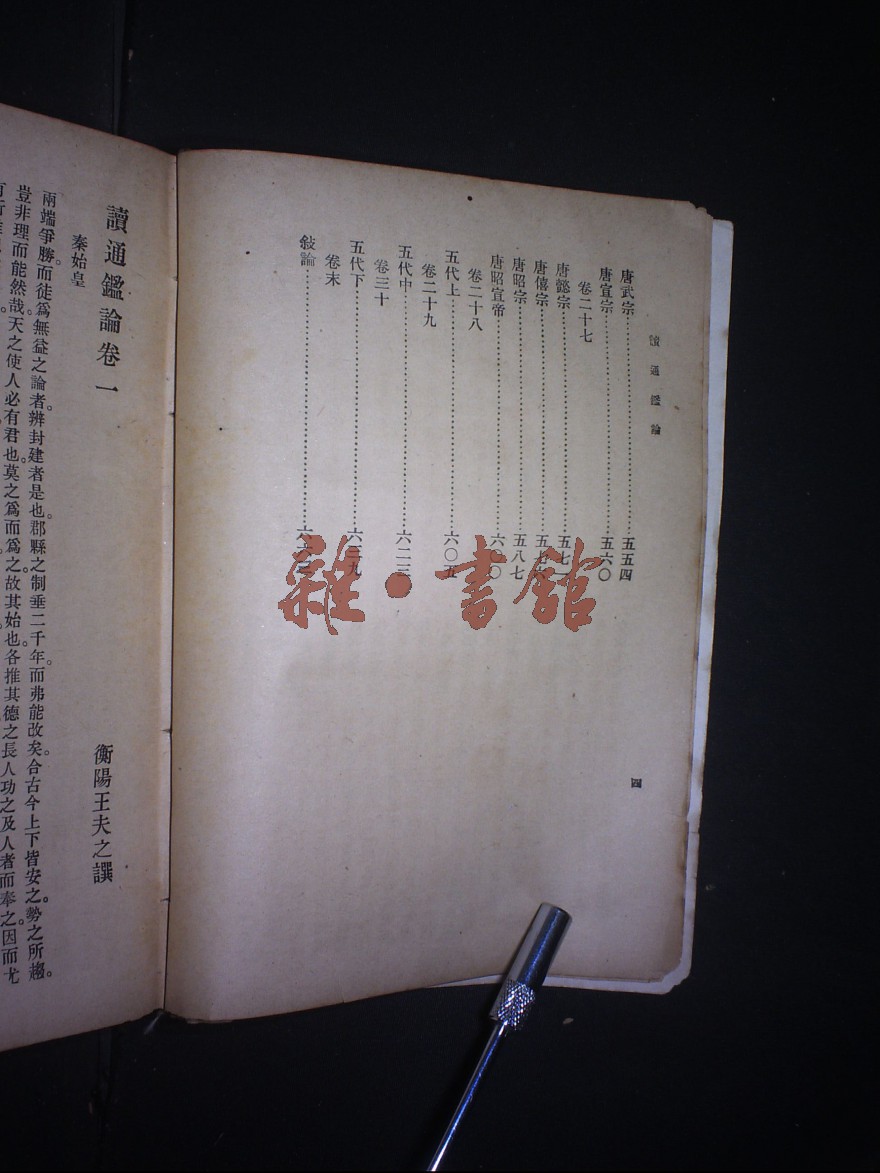 讀通鑑論
唐武宗……五五四
唐宣宗……五六〇
卷二十七
唐懿宗……五七
唐僖宗……五七
唐昭宗……五八七
唐昭宣帝……六〇〇
卷二十八
五代上……六〇五
卷二十九
五代中……六二三
卷三十
五代下……六三九
卷末
敍論……六
四
雜·書館
讀通鑑論卷一
衡陽王夫之譔
秦始皇
兩端爭勝。而徒爲無益之論者。辨封建者是也。郡縣之制。垂二千年。而弗能改矣。合古今上下皆安之。勢之所趨。
豈非理而能然哉。天之使人必有君也。莫之爲而爲之。故其始也。各推其德之長人功之及人者而奉之。因而尤